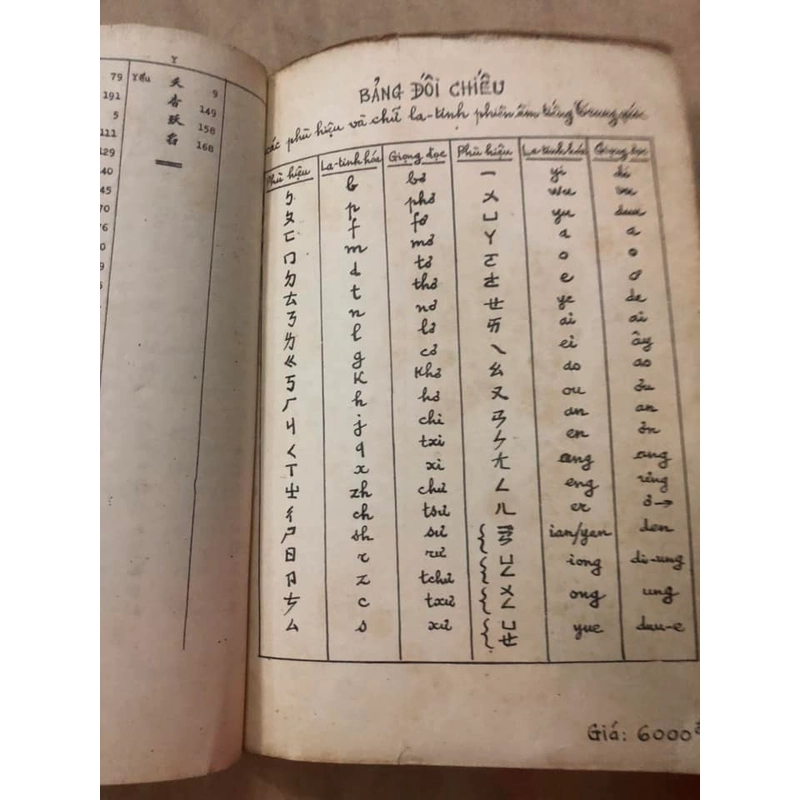 Y
79 Yếu 夭 9
191 杳 149
5 跃 158
111 窅 168
129
40
45
70
76
BẢNG ĐỐI CHIẾU
các phù hiệu và chữ la-tinh phiên âm tiếng Trung quốc
Phù hiệu La-tinh hóa Giọng đọc Phù hiệu La-tinh hóa Giọng đọc
ㄅ b bơ 一 yi di
ㄆ p phơ ㄨ wu vu
ㄈ f fơ ㄩ yu duy
ㄇ m mơ ㄚ a a
ㄉ d tơ ㄛ o o
ㄊ t thơ ㄜ e ơ
ㄋ n nơ ㄝ ye de
ㄌ l lơ ㄞ ai ai
ㄍ g cơ ㄟ ei ây
ㄎ k khơ ㄠ ao ao
ㄏ h hơ ㄡ ou âu
ㄐ j chi ㄢ an an
ㄑ q txi ㄣ en ân
ㄒ x xi ㄤ ang ang
ㄓ zh chư ㄥ eng
ㄔ ch tsư ㄦ er ơ→
ㄕ sh sư ㄧㄢ ian/yan den
ㄖ r rư ㄩㄥ iong di-ung
ㄗ z tchư ㄨㄥ ong ung
ㄘ c txư ㄩㄝ yue duy-e
ㄙ s xư
Giá: 6000đ